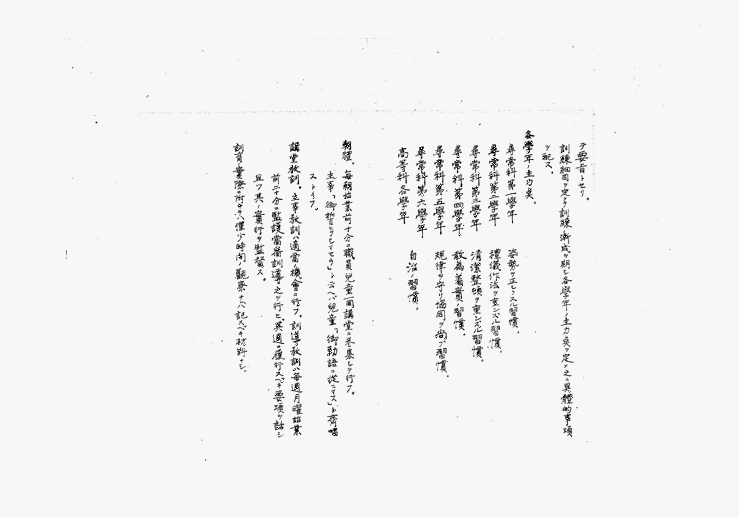 テ要旨トセリ。
訓練細目ヲ定メ訓練ノ漸成ヲ期シ各學年ノ主力点ヲ定メ之ニ具體的事項
ヲ配ス。
各學年ノ主力点。
尋常科第一學年 姿勢ヲ正シクスル習慣。
尋常科第二學年 禮儀作法ヲ重ンズル習慣。
尋常科第三學年 清潔整頓ヲ重ンズル習慣。
尋常科第四學年 敢為着實ノ習慣。
尋常科第五學年 規律ヲ守リ協同ヲ尚ブ習慣。
尋常科第六學年
高等科各學年 自治ノ習慣。
朝禮。毎朝始業前十分ニ職員兒童一同講堂ニ参集シテ行フ。
主事「御誓ヒヲシマセウ」ト云ヘバ兒童「御勅語ニ從ヒマス」ト齊唱
ストイフ。
講堂教訓。主事教訓ハ適當ノ機會ニ行フ。訓導教訓ハ毎週月曜始業
前二十分ニ監護當番訓導之ヲ行ヒ、其週ニ履行スベキ要項ヲ話シ
且ツ其ノ實行ヲ監督ス。
訓育實際ニ付テハ僅少時間ノ觀察ナレバ記スベキ材料ナシ。